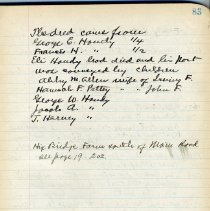 83
The deed came from
George E. Handy 1/4
Francis H. " 1/2
Eli Handy had died and his part
was conveyed by children
Abby M. Allen wife of Irving F.
Hannah F. Potter " " John F.
George W. Handy
Jacob A. "
J. Harvey "
Hix Bridge Farm south of Main Road
see page 19-202